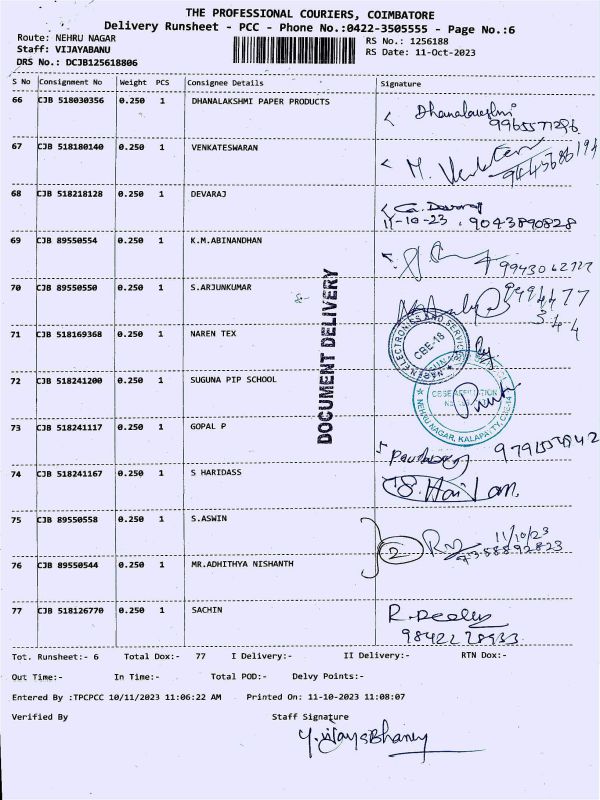 THE PROFESSIONAL COURIERS, COIMBATORE
Delivery Runsheet - PCC - Phone No.:0422-3505555 - Page No.:6
Route: NEHRU NAGAR RS No.: 1256188
Staff: VIJAYABANU RS Date: 11-Oct-2023
DRS No.: DCJB125618806
S No Consignment No Weight PCS Consignee Details Signature
66 CJB 518030356 0.250 1 DHANALAKSHMI PAPER PRODUCTS Dhanalakshmi
67 CJB 518180140 0.250 1 VENKATESWARAN M. Venkates
68 CJB 518218128 0.250 1 DEVARAJ G. Devaraj
11-10-23, 9043890828
69 CJB 89550554 0.250 1 K.M.ABINANDHAN
70 CJB 89550550 0.250 1 S.ARJUNKUMAR
71 CJB 518169368 0.250 1 NAREN TEX
NAREN ELECTRONICS AND SERVICE
CBE-18
72 CJB 518241200 0.250 1 SUGUNA PIP SCHOOL
CBSE AFFILIATION
NEHRU NAGAR, KALAPATTY, CBE-14
73 CJB 518241117 0.250 1 GOPAL P
74 CJB 518241167 0.250 1 S HARIDASS
75 CJB 89550558 0.250 1 S.ASWIN
2 11/10/23
76 CJB 89550544 0.250 1 MR.ADHITHYA NISHANTH
77 CJB 518126770 0.250 1 SACHIN
DOCUMENT DELIVERY
Tot. Runsheet:- 6 Total Dox:- 77 I Delivery:- II Delivery:- RTN Dox:-
Out Time:- In Time:- Total POD:- Delvy Points:-
Entered By :TPCPCC 10/11/2023 11:06:22 AM Printed On: 11-10-2023 11:08:07
Verified By Staff Signature